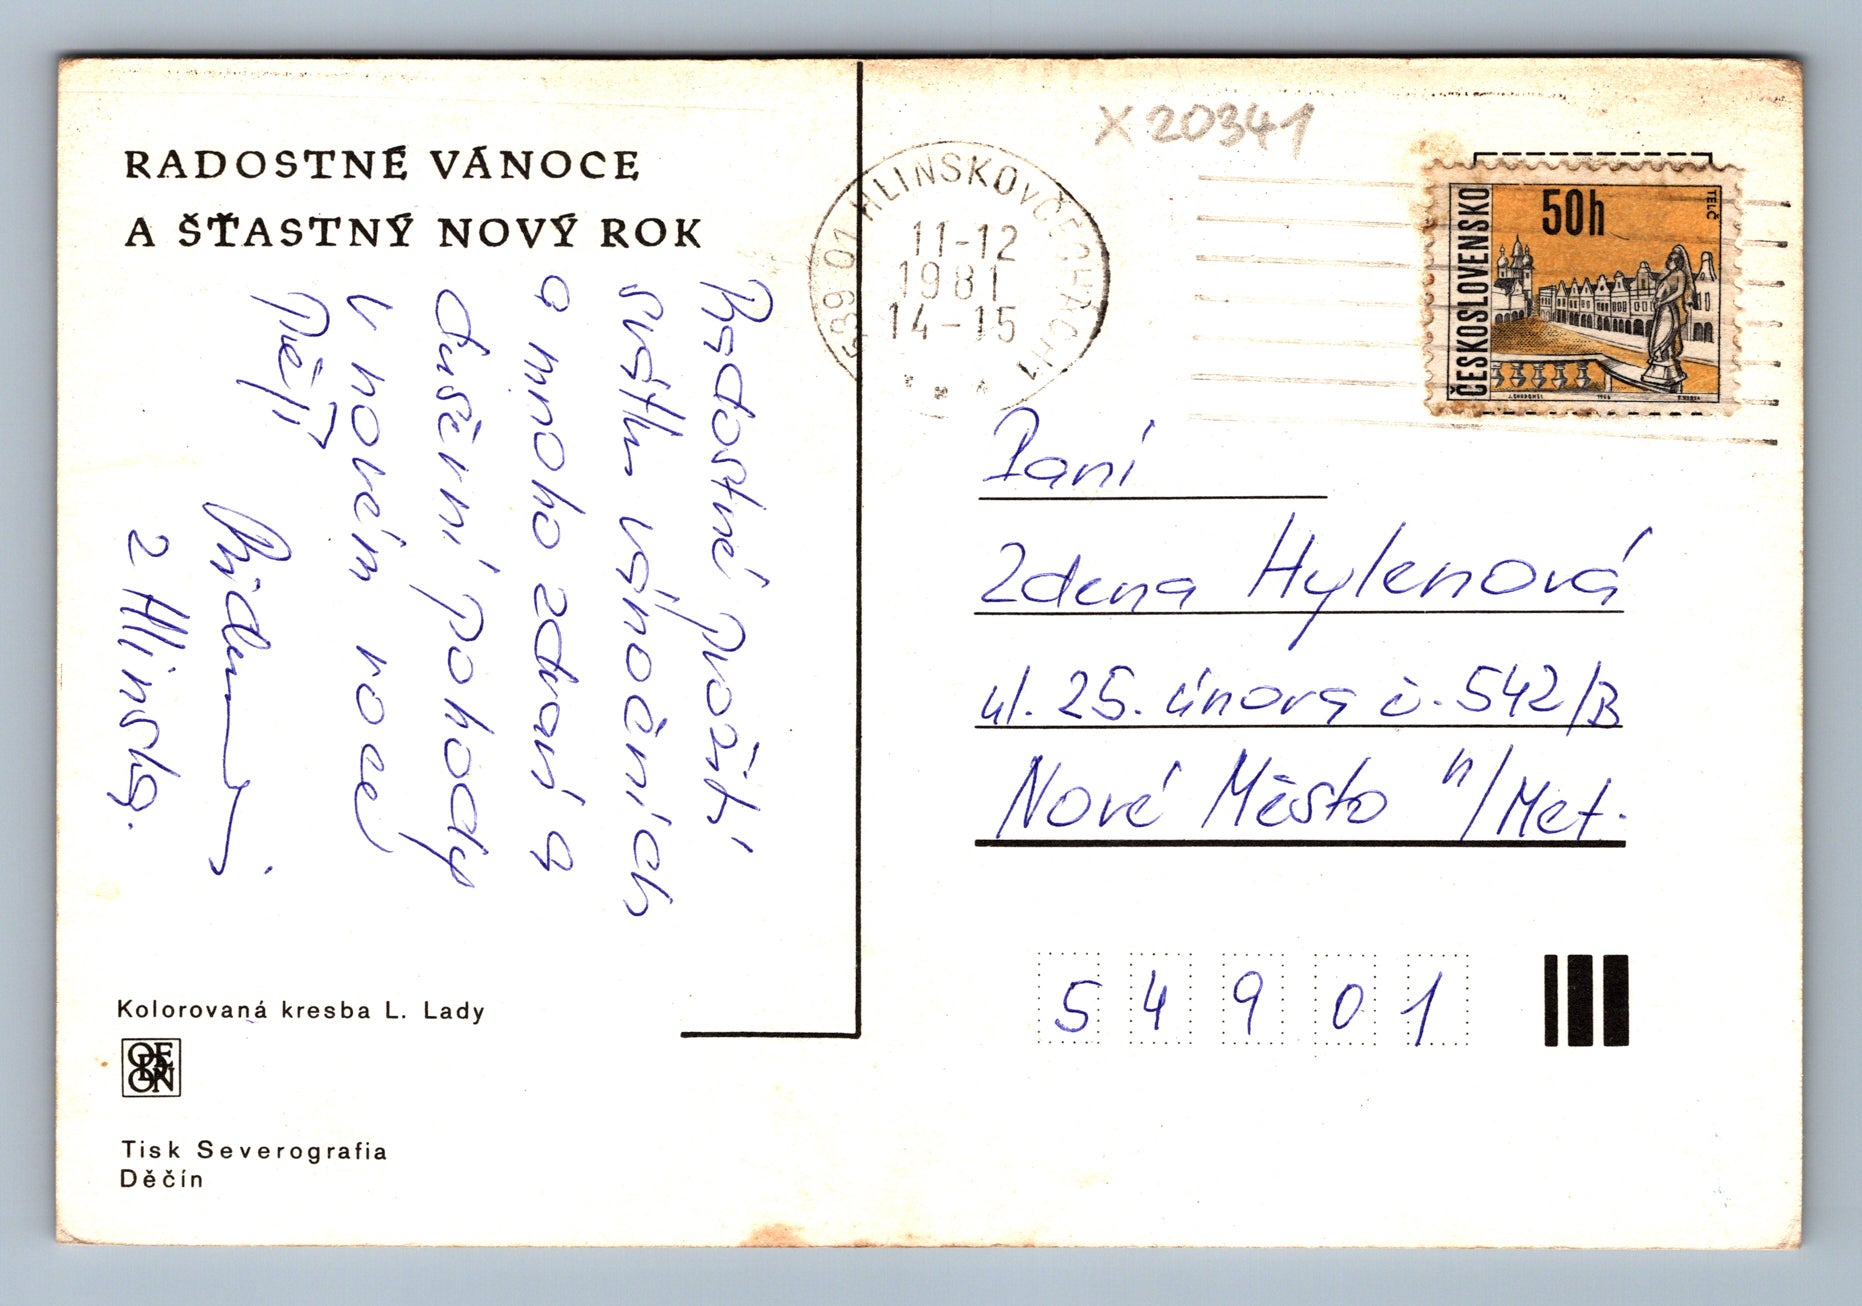 RADOSTNÉ VÁNOCE
A ŠŤASTNÝ NOVÝ ROK
Radostné prožití
svátků vánočních
a mnoho zdraví a
duševní pohody
v novém roce
přejí
z Hlinska.
Kolorovaná kresba L. Lady
ODEON
Tisk Severografia
Děčín
X 20341
539 01 HLINSKO V ČECHÁCH 1
11-12
1981
14-15
ČESKOSLOVENSKO
50h
TELČ
Paní
Zdena Hylenová
ul. 25. února č. 542/B
Nové Město n/Met.
54901